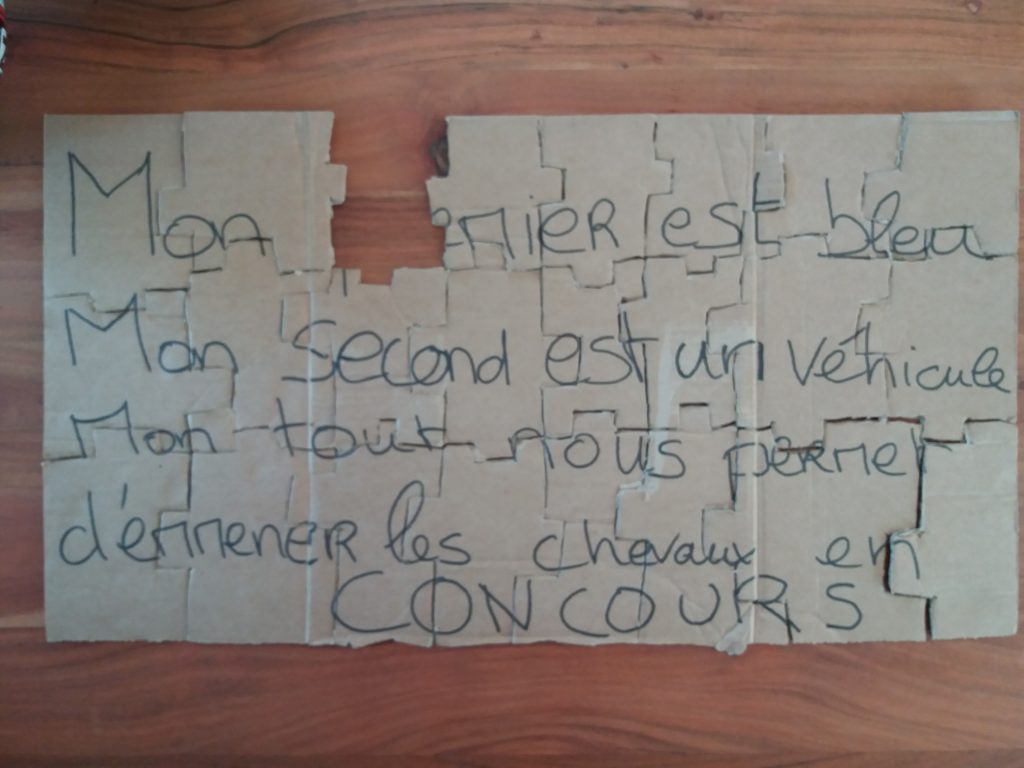 Mon emier est bleu
Mon second est un véhicule
Mon tout nous permet
d'emmener les chevaux en
CONCOURS